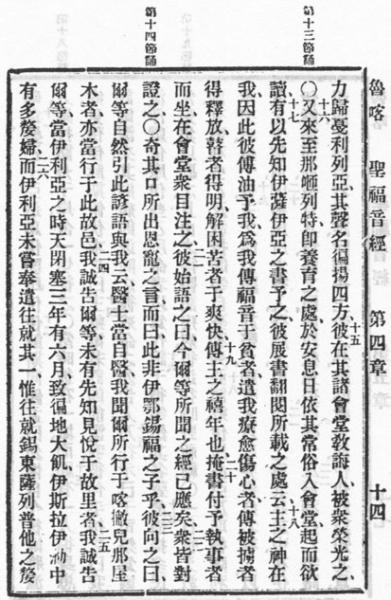 魯喀 聖福音經 第四章 十四
第十三節誦
第十四節誦
力歸戞利列亞其聲名徧揚四方十五彼在其諸會堂教誨人被衆榮光之
十六〇又來至那咂列特卽養育之處於安息日依其常俗入會堂起而欲
讀十七有以先知伊薩伊亞之書予之彼展書翻閱所載之處云十八主之神在
我因此彼傅油予我爲我傳福音于貧者遣我療愈傷心者傳被擄者
得釋放瞽者得明解困苦者于爽快十九傳主之禧年也二十掩書付予執事者
而坐在會堂衆目注之二一彼始語之曰今爾等所聞之經已應矣二二衆皆對
證之〇奇其口所出恩寵之言而曰此非伊鄂錫福之子乎二三彼向之曰
爾等自然引此諺語與我云醫士當自醫我聞爾所行于喀撇兒那屋
木者亦當行于此故邑二四我誠告爾等未有先知見悅于故里者二五我誠告
爾等當伊利亞之時天閉塞三年有六月致徧地大飢伊斯拉伊泐中
有多嫠婦二六而伊利亞未嘗奉遣往就其一惟往就錫東薩列普他之嫠